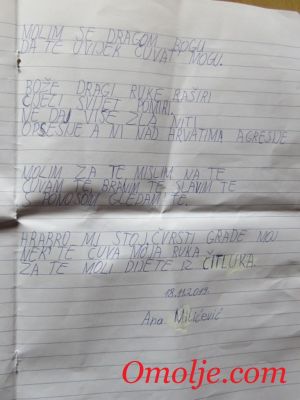 MOLIM SE DRAGOM BOGU
DA TE UVIJEK ČUVAT MOGU.
BOŽE DRAGI RUKE RAŠIRI
CIJELI SVIJET POMIRI.
NE DAJ VIŠE ZLA NITI
OPSESIJE A NI NAD HRVATIMA AGRESIJE
MOLIM ZA TE MISLIM NA TE
ČUVAM TE, BRANIM TE SLAVIM TE
S PONOSOM GLEDAM TE.
HRABRO MI STOJ ČVRSTI GRADE MOJ
NEK TE ČUVA MOJA RUKA
ZA TE MOLI DIJETE IZ ČITLUKA.
18.11.2019.
Ana Miličević
Omolje.com